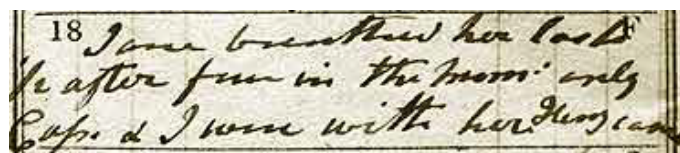 18 Jane breathed her last
½ after four in the morn: only
Cass. & I were with her. Henry came